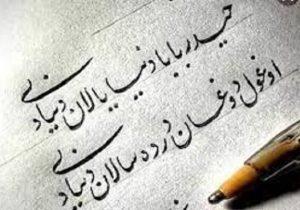 حیدربابا دنیا یالان دنیادی
اوغول دوغان درده سالان دنیادی